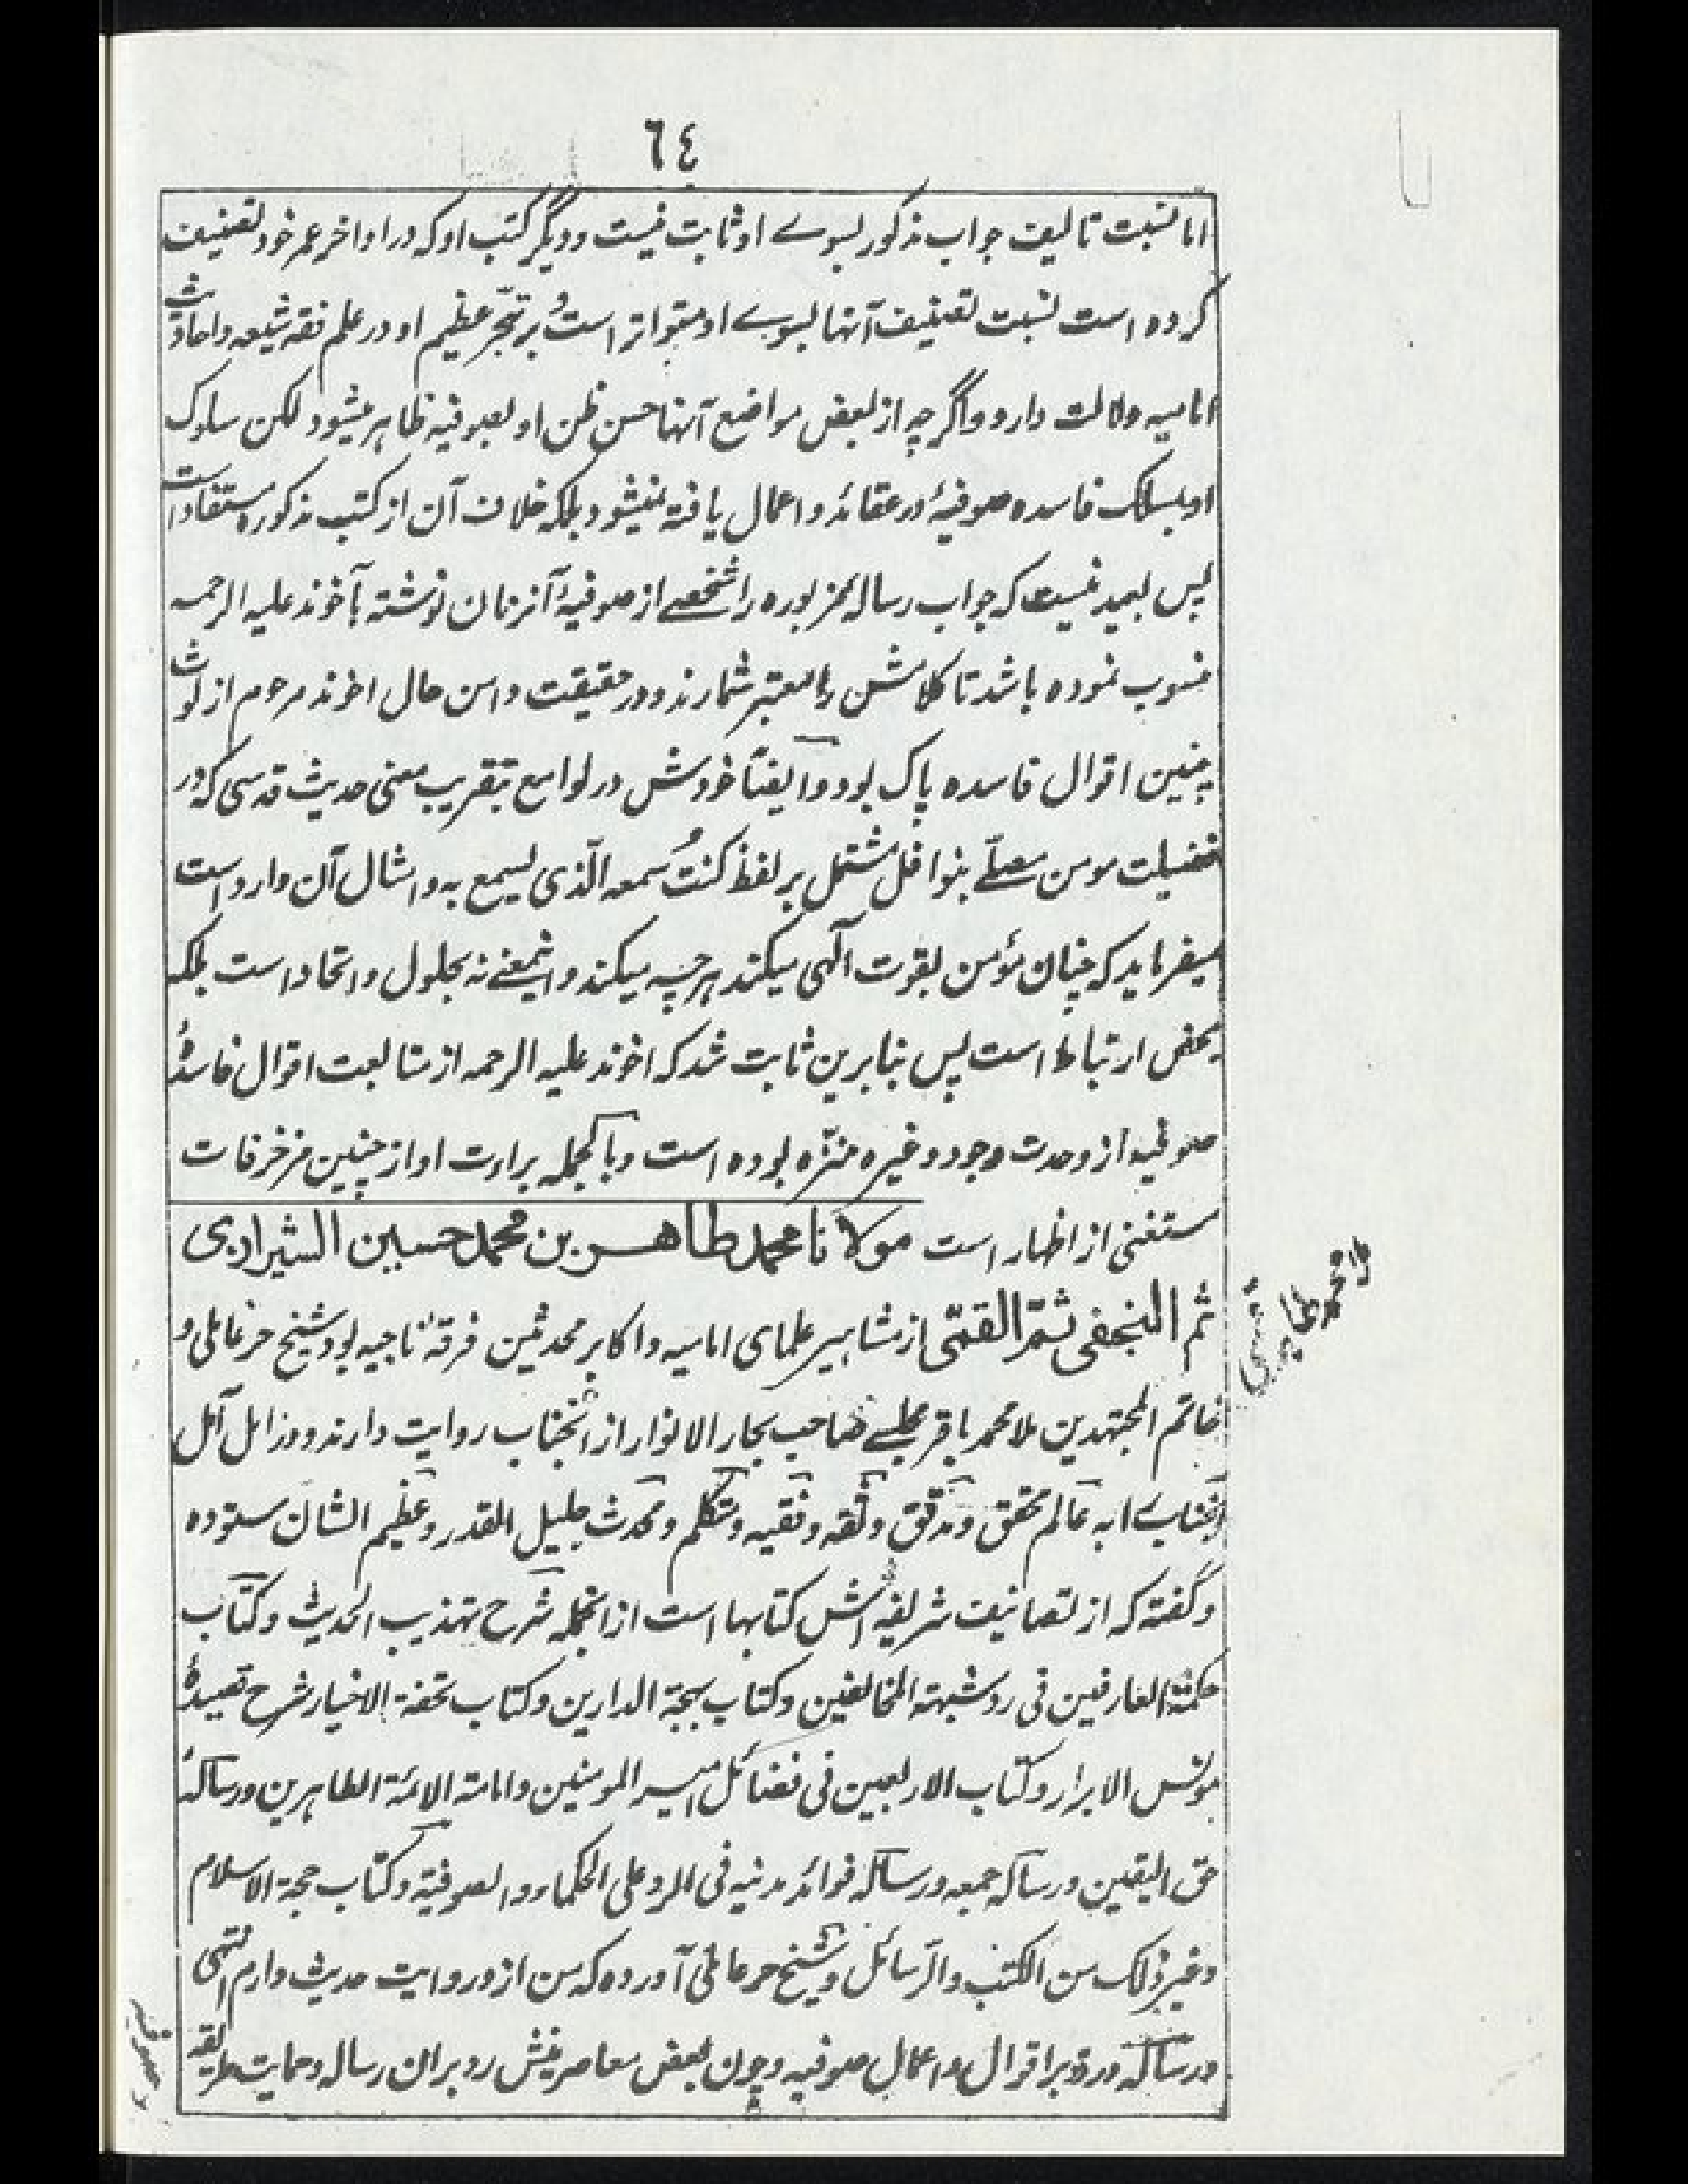 ٦٤
اما نسبت تالیف جواب مذکور بسوے او ثابت نیست و دیگر کتب او که در اواخر عمر خود تصنیف
کرده است نسبت تصنیف آنها بسوے او متواتر است بر تبحّر عظیم او در علم فقه شیعه و احادیث
امامیه دلالت دارد و اگرچه از بعض مواضع آنها حسن ظن او بصوفیه ظاهر میشود لکن سلوک
او بمسلک فاسده صوفیهٔ در عقائد و اعمال یافته نمیشود بلکه خلاف آن از کتب مذکوره مستفاد است
پس بعید نیست که جواب رساله مزبوره را شخصے از صوفیهٔ آنزمان نوشته بآخوند علیه الرحمه
منسوب نموده باشد تا کلامش را معتبر شمارند و در حقیقت دامن حال اخوند مرحوم از لوث
چنین اقوال فاسده پاک بود و ایضًا خودش در لوامع بتقریب معنی حدیث قدسی که در
فضیلت مومن مصلّے بنوافل مشتمل بر لفظ کنتُ سمعه الّذی یسمع به و امثال آن وارد است
میفرماید که چنان مؤمن بقوت آلهی میکند هرچه میکند و اینمعنے نه بحلول و اتحاد است بلکه
بمحض ارتباط است پس بنابرین ثابت شد که اخوند علیه الرحمه از متابعت اقوال فاسدهٔ
صوفیه از وحدت وجود و غیره منزّه بوده است و بالجمله براءت او از چنین مزخرفات
مستغنی از اظهار است مولانا محمد طاهر بن محمد حسین الشیرازی
ثم النجفی ثمّ القمّی از مشاهیر علمای امامیه و اکابر محدثین فرقهٔ ناجیه بود شیخ حر عاملی و
خاتم المجتهدین ملا محمد باقر مجلسے صاحب بحار الانوار از آنجناب روایت دارند و در امل آمل
آنجناب را به عالم محقق و مدقق و ثقه و فقیه و متکلم و محدث جلیل القدر و عظیم الشان ستوده
و گفته که از تصانیف شریفه اش کتابها است ازانجمله شرح تهذیب الحدیث و کتاب
حکمة العارفین فی رد شبهة المخالفین و کتاب بهجة الدارین و کتاب تحفة الاخیار شرح قصیدهٔ
مونس الابرار و کتاب الاربعین فی فضائل امیر المومنین و امامة الائمة الطاهرین و رسالهٔ
حق الیقین و رساله جمعه و رساله فوائد مدنیه فی الرد علی الحکماء و الصوفیة و کتاب حجة الاسلام
و غیر ذلک من الکتب و الرسائل و شیخ حر عاملی آورده که من از و روایت حدیث دارم انتهی
و رساله در رد بر اقوال و اعمال صوفیه و چون بعض معاصرینش رد بر ان رساله و حمایت طریقه
ملا محمد طاهر قمی